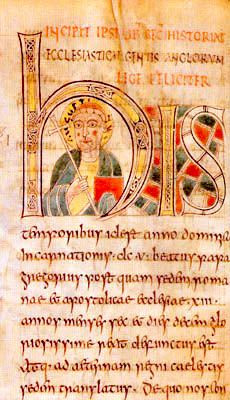 INCIPIT LIB HISTORIAE
ECCLESIASTICAE GENTIS ANGLORUM
LEGE FELICITER
his
temporibus id est anno domini
incarnationis .dc.v. beatus papa
gregorius postquam sedem roma
nae & apostolicae ecclesiae .xiii.
annos menses sex & dies decem glo
riosissime rexit defunctus est
atq. ad aeternam regni caelestis
sedem translatus. De quo nos